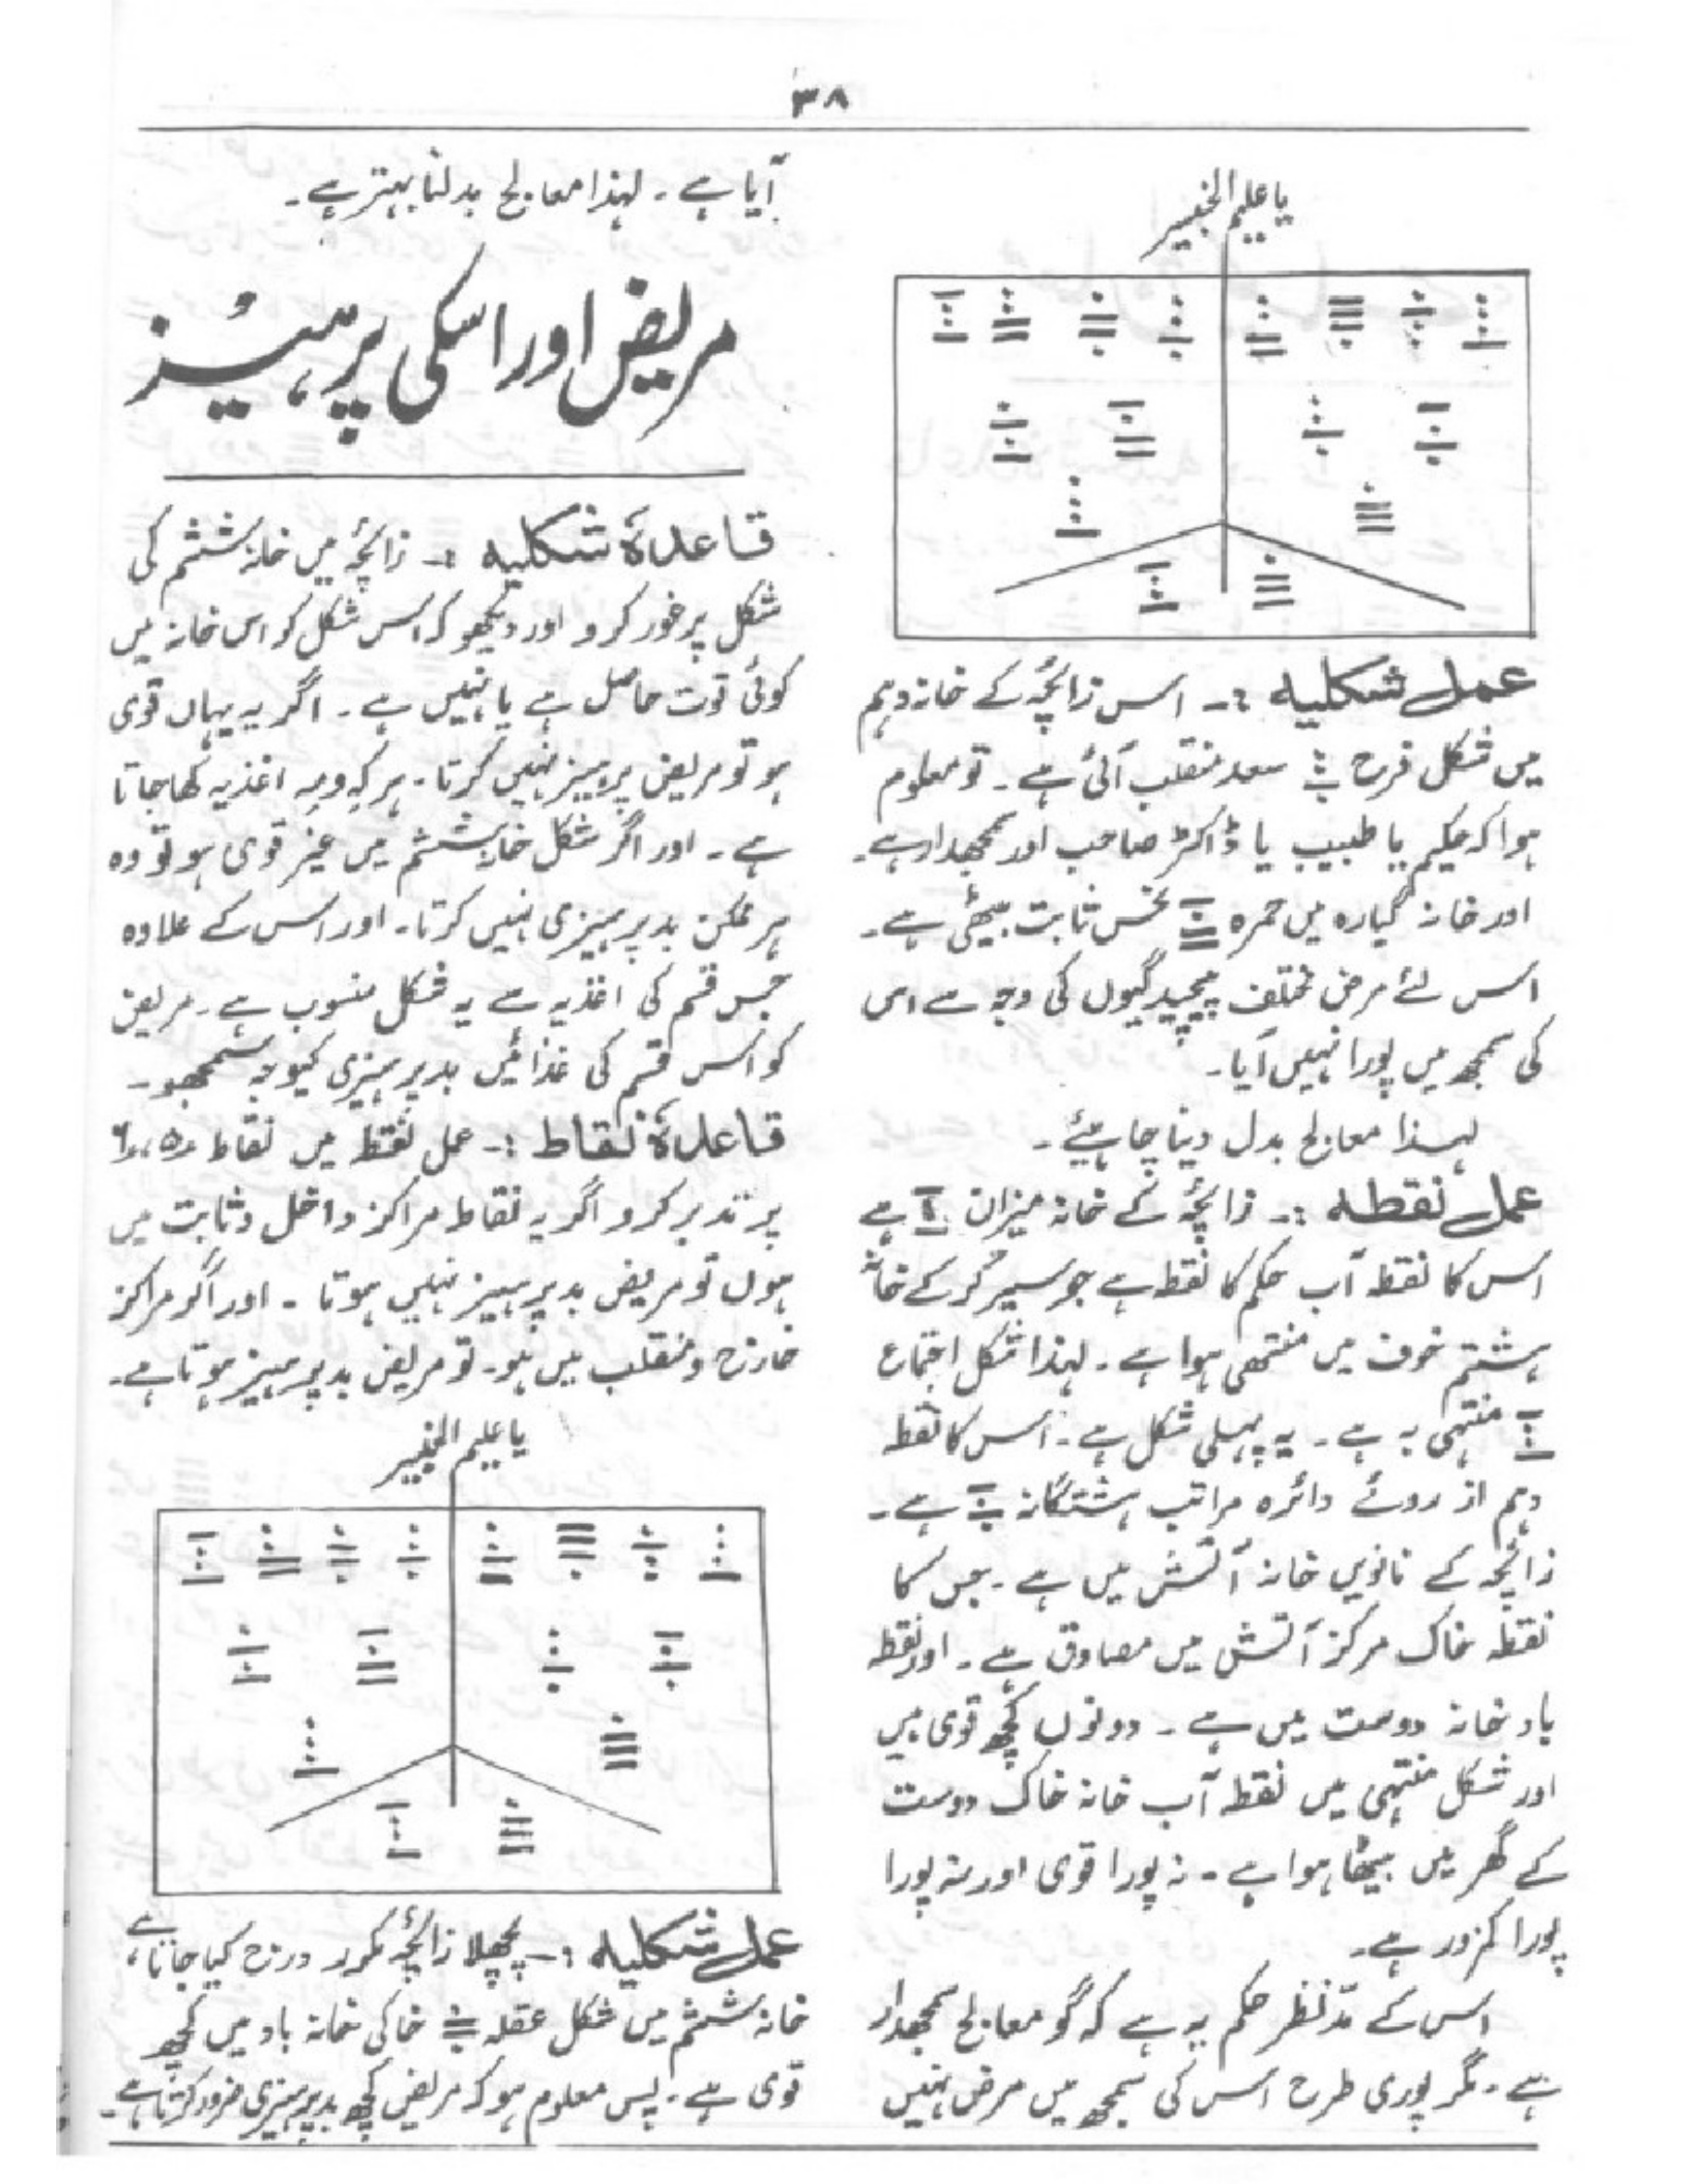 ۳۸
یا علیم الخبیر
عمل شکلیہ :۔ اس زائچۂ کے خانہ دہم
میں شکل فرح سعد منقلب آئی ہے ۔ تو معلوم
ہوا کہ حکیم یا طبیب یا ڈاکٹر صاحب اور سمجھدار ہے ۔
اور خانہ گیارہ میں حمرہ نحس ثابت بیٹھی ہے ۔
اس لئے مرض مختلف پیچیدگیوں کی وجہ سے اس
کی سمجھ میں پورا نہیں آیا ۔
لہذا معالج بدل دینا چاہیئے ۔
عمل نقطہ :۔ زائچۂ کے خانہ میزان ہے
اس کا نقطہ آب حکم کا نقطہ ہے جو سیر کر کے خانہ
ہشتم خوف میں منتہی ہوا ہے ۔ لہذا شکل اجتماع
منتہی بہ ہے ۔ یہ پہلی شکل ہے ۔ اس کا نقطہ
دہم از روئے دائرہ مراتب ہشتگانہ ہے ۔
زائچہ کے نانویں خانہ آتش میں ہے ۔ جس کا
نقطہ خاک مرکز آتش میں مصادق ہے ۔ اور نقطہ
باد خانہ دوست میں ہے ۔ دونوں کچھ قوی ہیں
اور شکل منتہی میں نقطہ آب خانہ خاک دوست
کے گھر میں بیٹھا ہوا ہے ۔ نہ پورا قوی اور نہ پورا
پورا کمزور ہے ۔
اس کے مدّ نظر حکم یہ ہے کہ گو معالج سمجھدار
ہے ۔ مگر پوری طرح اس کی سمجھ میں مرض نہیں
آیا ہے ۔ لہذا معالج بدلنا بہتر ہے ۔
مریض اور اسکی پرہیز
قاعدۂ شکلیہ :۔ زائچۂ میں خانہ ششم کی
شکل پر غور کرو اور دیکھو کہ اس شکل کو اس خانہ میں
کوئی قوت حاصل ہے یا نہیں ہے ۔ اگر یہ یہاں قوی
ہو تو مریض پرہیز نہیں کرتا ۔ ہر کہ ومہ اغذیہ کھا جاتا
ہے ۔ اور اگر شکل خانہ ششم میں غیر قوی ہو تو وہ
ہر ممکن بد پرہیزی نہیں کرتا ۔ اور اس کے علاوہ
جس قسم کی اغذیہ سے یہ شکل منسوب ہے ۔ مریض
کو اس قسم کی غذائیں بد پرہیزی کیوجہ سمجھو ۔
قاعدۂ نقاط :۔ عمل نقطہ میں نقاط
پر تدبر کرو اگر یہ نقاط مراکز داخل وثابت میں
ہوں تو مریض بد پرہیز نہیں ہوتا ۔ اور اگر مراکز
خارج و منقلب میں ہو ۔ تو مریض بد پرہیز ہوتا ہے ۔
یا علیم الخبیر
عمل شکلیہ :۔ پچھلا زائچۂ مکرر درج کیا جاتا ہے ،
خانہ ششم میں شکل عقلہ خاکی خانہ باد میں کچھ
قوی ہے ۔ پس معلوم ہو کہ مریض کچھ بد پرہیزی ضرور کرتا ہے ۔